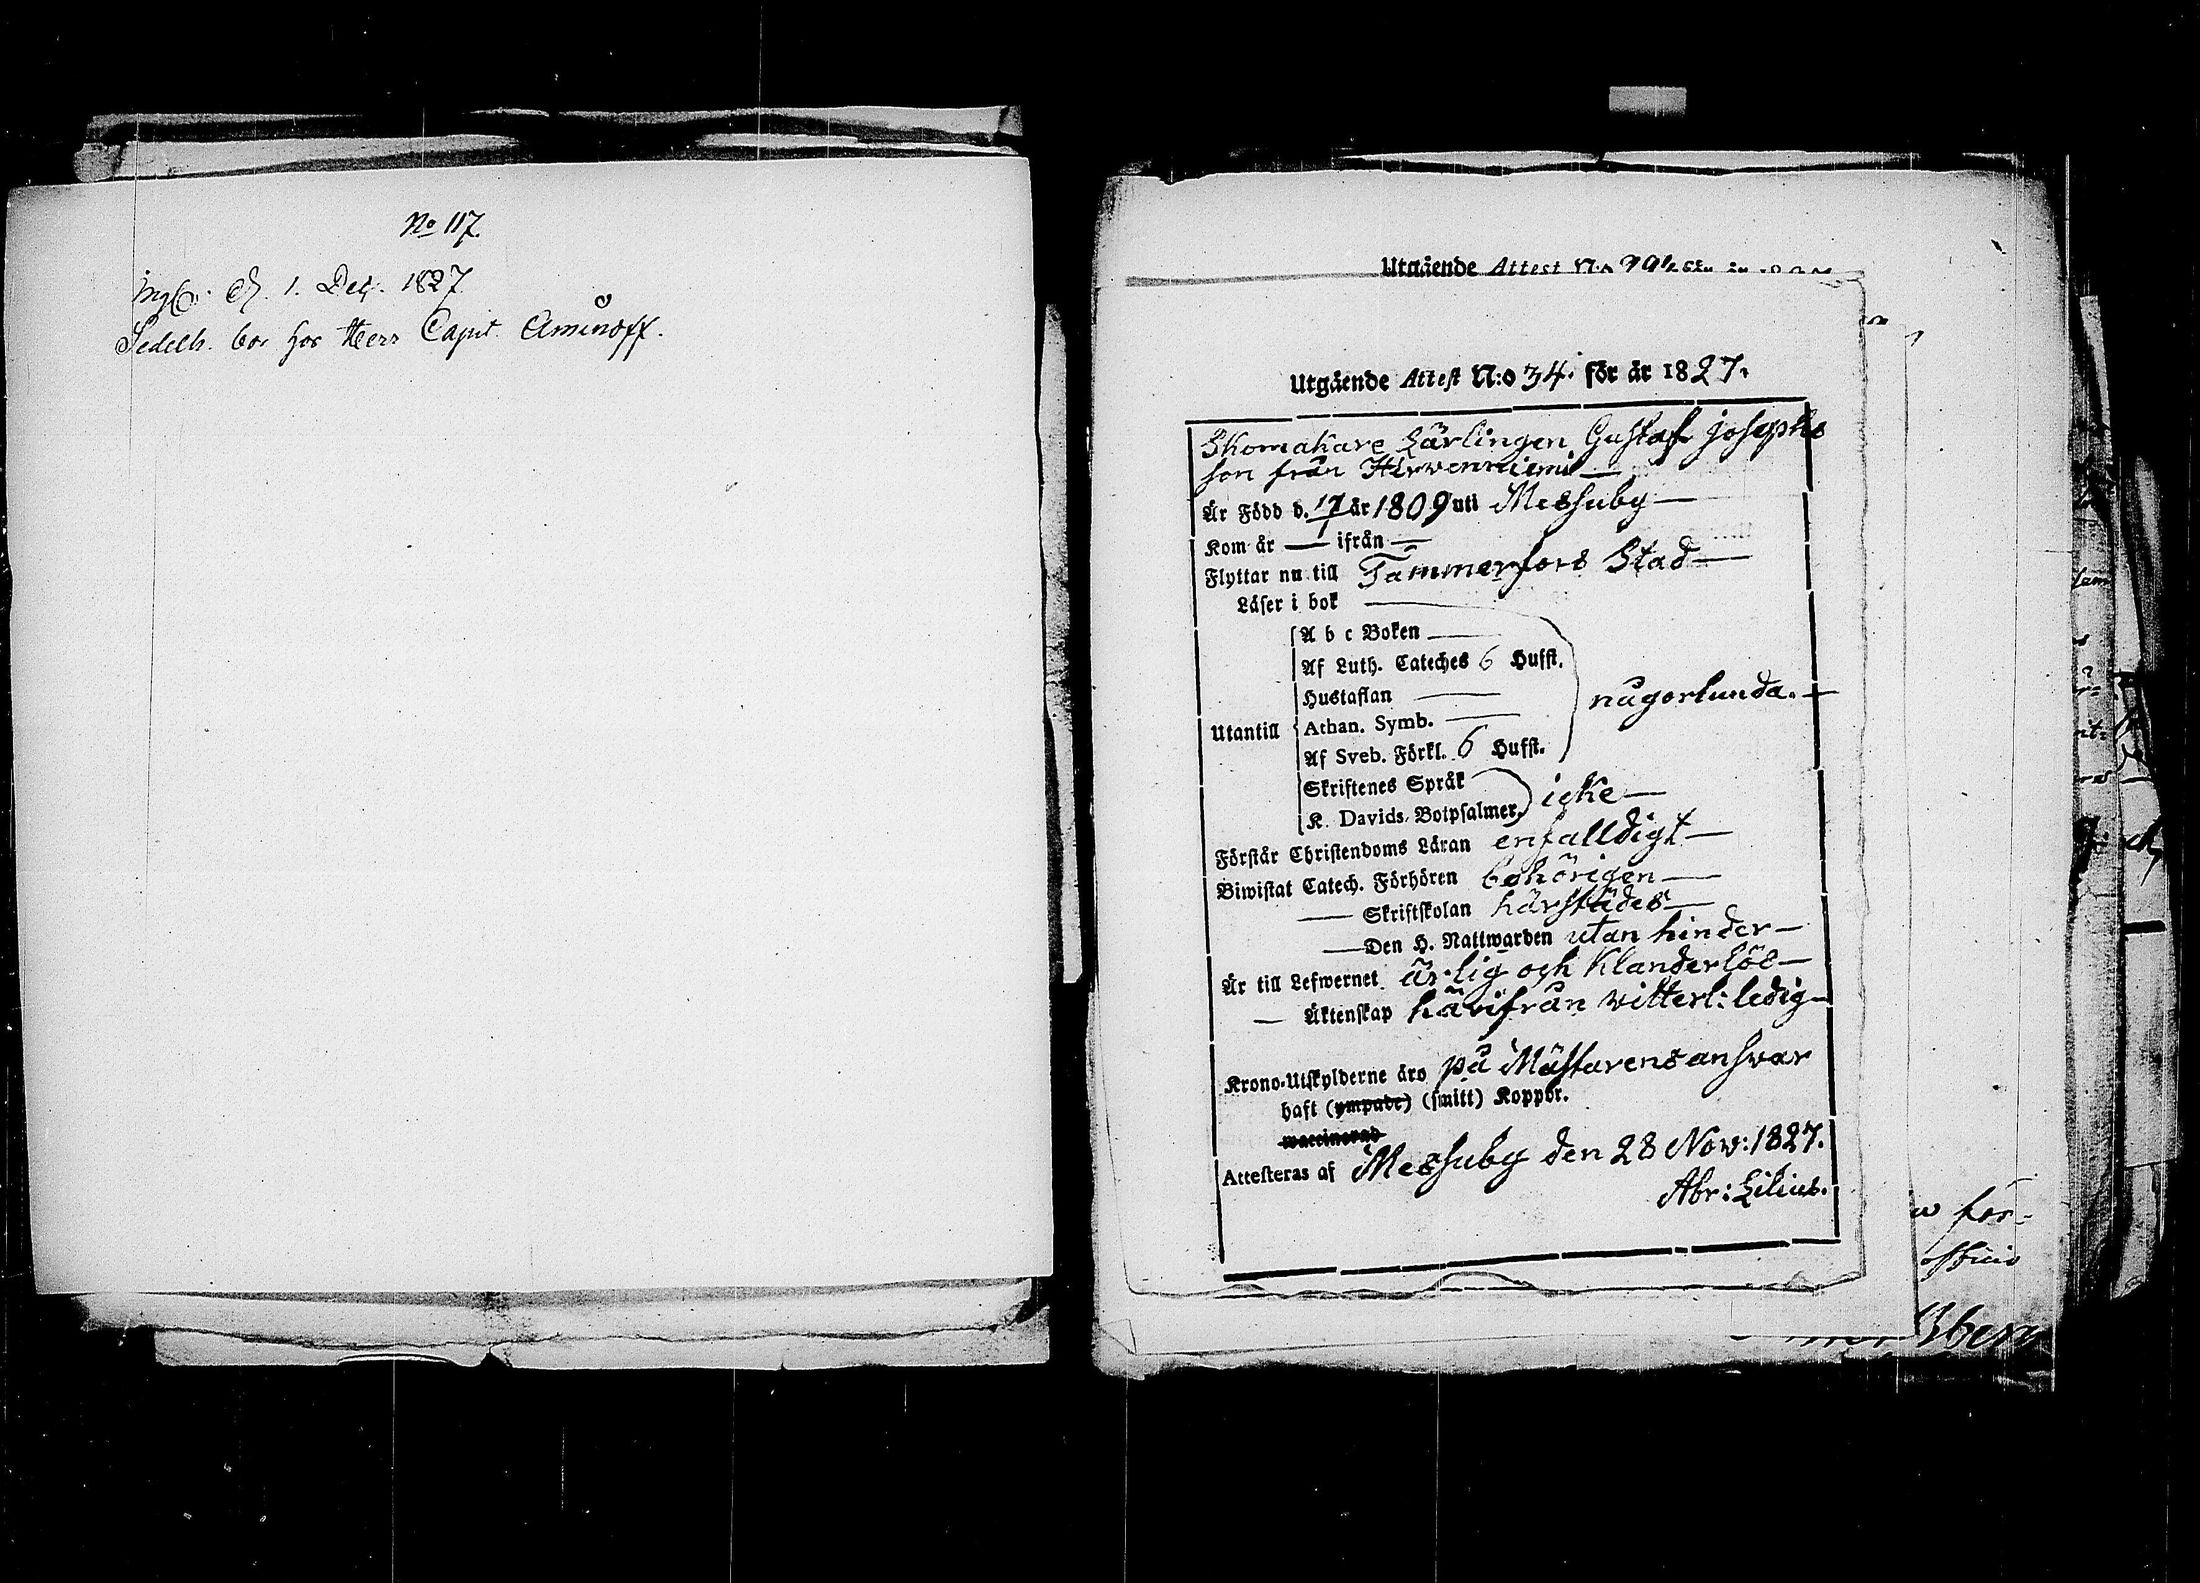 No 117.
d. 1. Dec. 1827
Sedelh. bor hos Herr Capit. Aminoff.
Utgående Attest N:o
Utgående Attest N:o 34. för år 1827.
Skomakare Lärlingen Gustaf Josephs
son från Hirvenniemi —
Är Född d. 17/1 år 1809 uti Messuby —
Kom år — ifrån —
Flyttar nu till Tammerfors Stad —
Läser i bok —
A b c Boken —
Af Luth. Cateches 6 Hufst.
Hustaflan —
någorlunda. —
Utantill
Athan. Symb. —
Af Sveb. Förkl. 6 Hufst.
Skriftenes Språk
icke —
K. Davids Botpsalmer,
Förstår Christendoms Läran enfalldigt —
Biwistat Catech. Förhören behörigen —
— Skriftskolan härstädes —
— Den H. Nattwarden utan hinder —
Är till Lefwernet ärlig och Klanderlös —
— Äktenskap härifrån vitterl: ledig —
Krono-Utskylderne äro på Mästarens answar
haft (ympade) (smitt) Koppor.
waccinerad
Attesteras af Messuby den 28 Nov: 1827.
Abr: Lilius.
för-